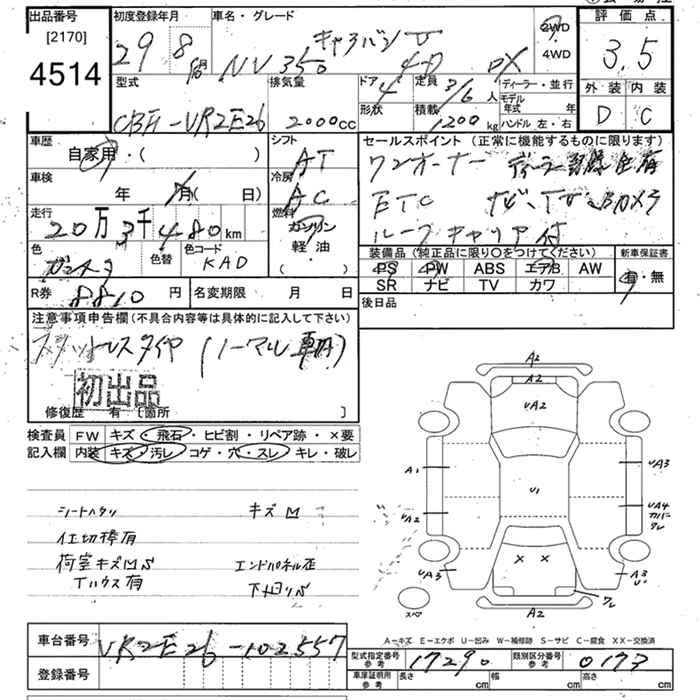 出品番号
[2170]
4514
初度登録年月
29 8月
車名・グレード
キャラバン
NV350 4D DX
2WD
4WD
評価点
3.5
外装 内装
D C
型式
CBF-VR2E26
排気量
2000cc
ドア 4
形状
定員 3/6人
積載 1200kg
ディーラー・並行
モデル年式 年
ハンドル 左・右
車歴
自家用・( )
シフト
AT
車検
年 月( 日)
冷房
AC
走行
20万3千480km
燃料
ガソリン
軽・油
( )
色
ガンメタ
色替
色コード
KAD
R券
8810円
名変期限 月 日
セールスポイント (正常に機能するものに限ります)
ワンオーナー
ETC ナビ、TV、Bカメラ
ルーフキャリア付
装備品(純正品に限り〇をつけてください)
PS PW ABS エアB AW
SR ナビ TV カワ
新車保証書
有・無
後日品
注意事項申告欄(不具合内容等は具体的に記入して下さい)
スタットレスタイヤ(ノーマル車内)
初出品
修復歴 有 [箇所 ]
検査員
記入欄
FW キズ・飛石・ヒビ割・リペア跡・×要
内装 キズ・汚レ・コゲ・穴・スレ・キレ・破レ
シートヘタリ キズ凹
仕切棒有
荷室キズ凹S エンドパネル歪
Tハウス有 下廻りS
A2
A2
UA2
A1
UA3
U1
UA2
UA4
カバー
ワレ
× ×
UA3
A3
U1
ワレ
スペア
A2
A-キズ E-エクボ U-凹み W-補修跡 S-サビ C-腐食 XX-交換済
車台番号
VR2E26-102557
登録番号
型式指定番号
参考
17290
類別区分番号
参考
0173
車庫証明用
参考
長さ cm 幅 cm 高さ cm